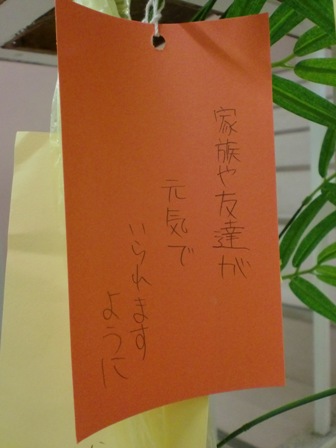 家族や友達が
元気で
いられます
ように